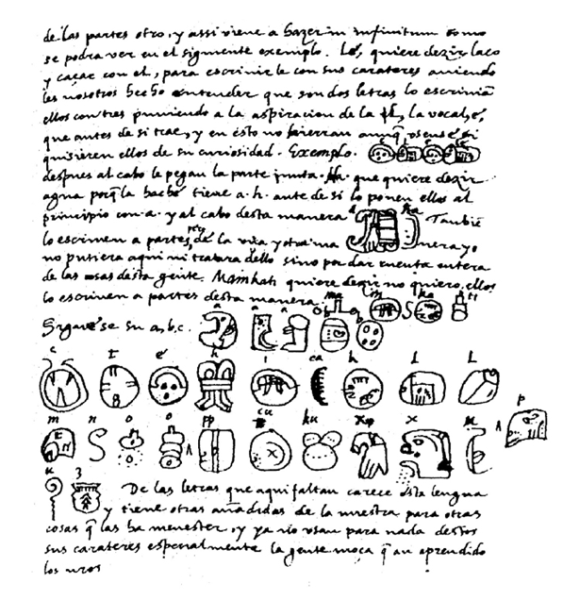 de las partes otro, y assi viene a hazer in infinitum como
se podra ver en el siguiente exemplo. Lé, quiere dezir laço
y caçar con el, para escrivirle con sus carateres aviendo
les nosotros hecho entender que son dos letras lo escrivian
ellos con tres puniendo a la aspiracion de la l, la vocal, é,
que antes de si trae, y en esto no hierran aunq̃ usense si
quisieren ellos de su curiosidad. Exemplo.
despues al cabo le pegan la parte junta. Ha. que quiere dezir
agua porq̃ la haché tiene a. h. ante de si lo ponen ellos al
principio con a. y al cabo desta manera a ha Tambiẽ
lo escriven a partes de la una y otra ma nera yo
no pusiera aqui ni tratara dello sino por dar cuenta entera
de las cosas desta gente. Mainkati quiere dezir no quiero, ellos
lo escriven a partes desta manera. ma i n ka ti
Siguese su a, b, c. a a a b b
c t é h i ca k l L
m n o o pp cu ku x x u p
u z
De las letras que aqui faltan carece esta lengua
y tiene otras añadidas de la nuestra para otras
cosas q̃ las ha menester, y ya no usan para nada destos
sus carateres especialmente la gente moça q̃ an aprendido
los nros